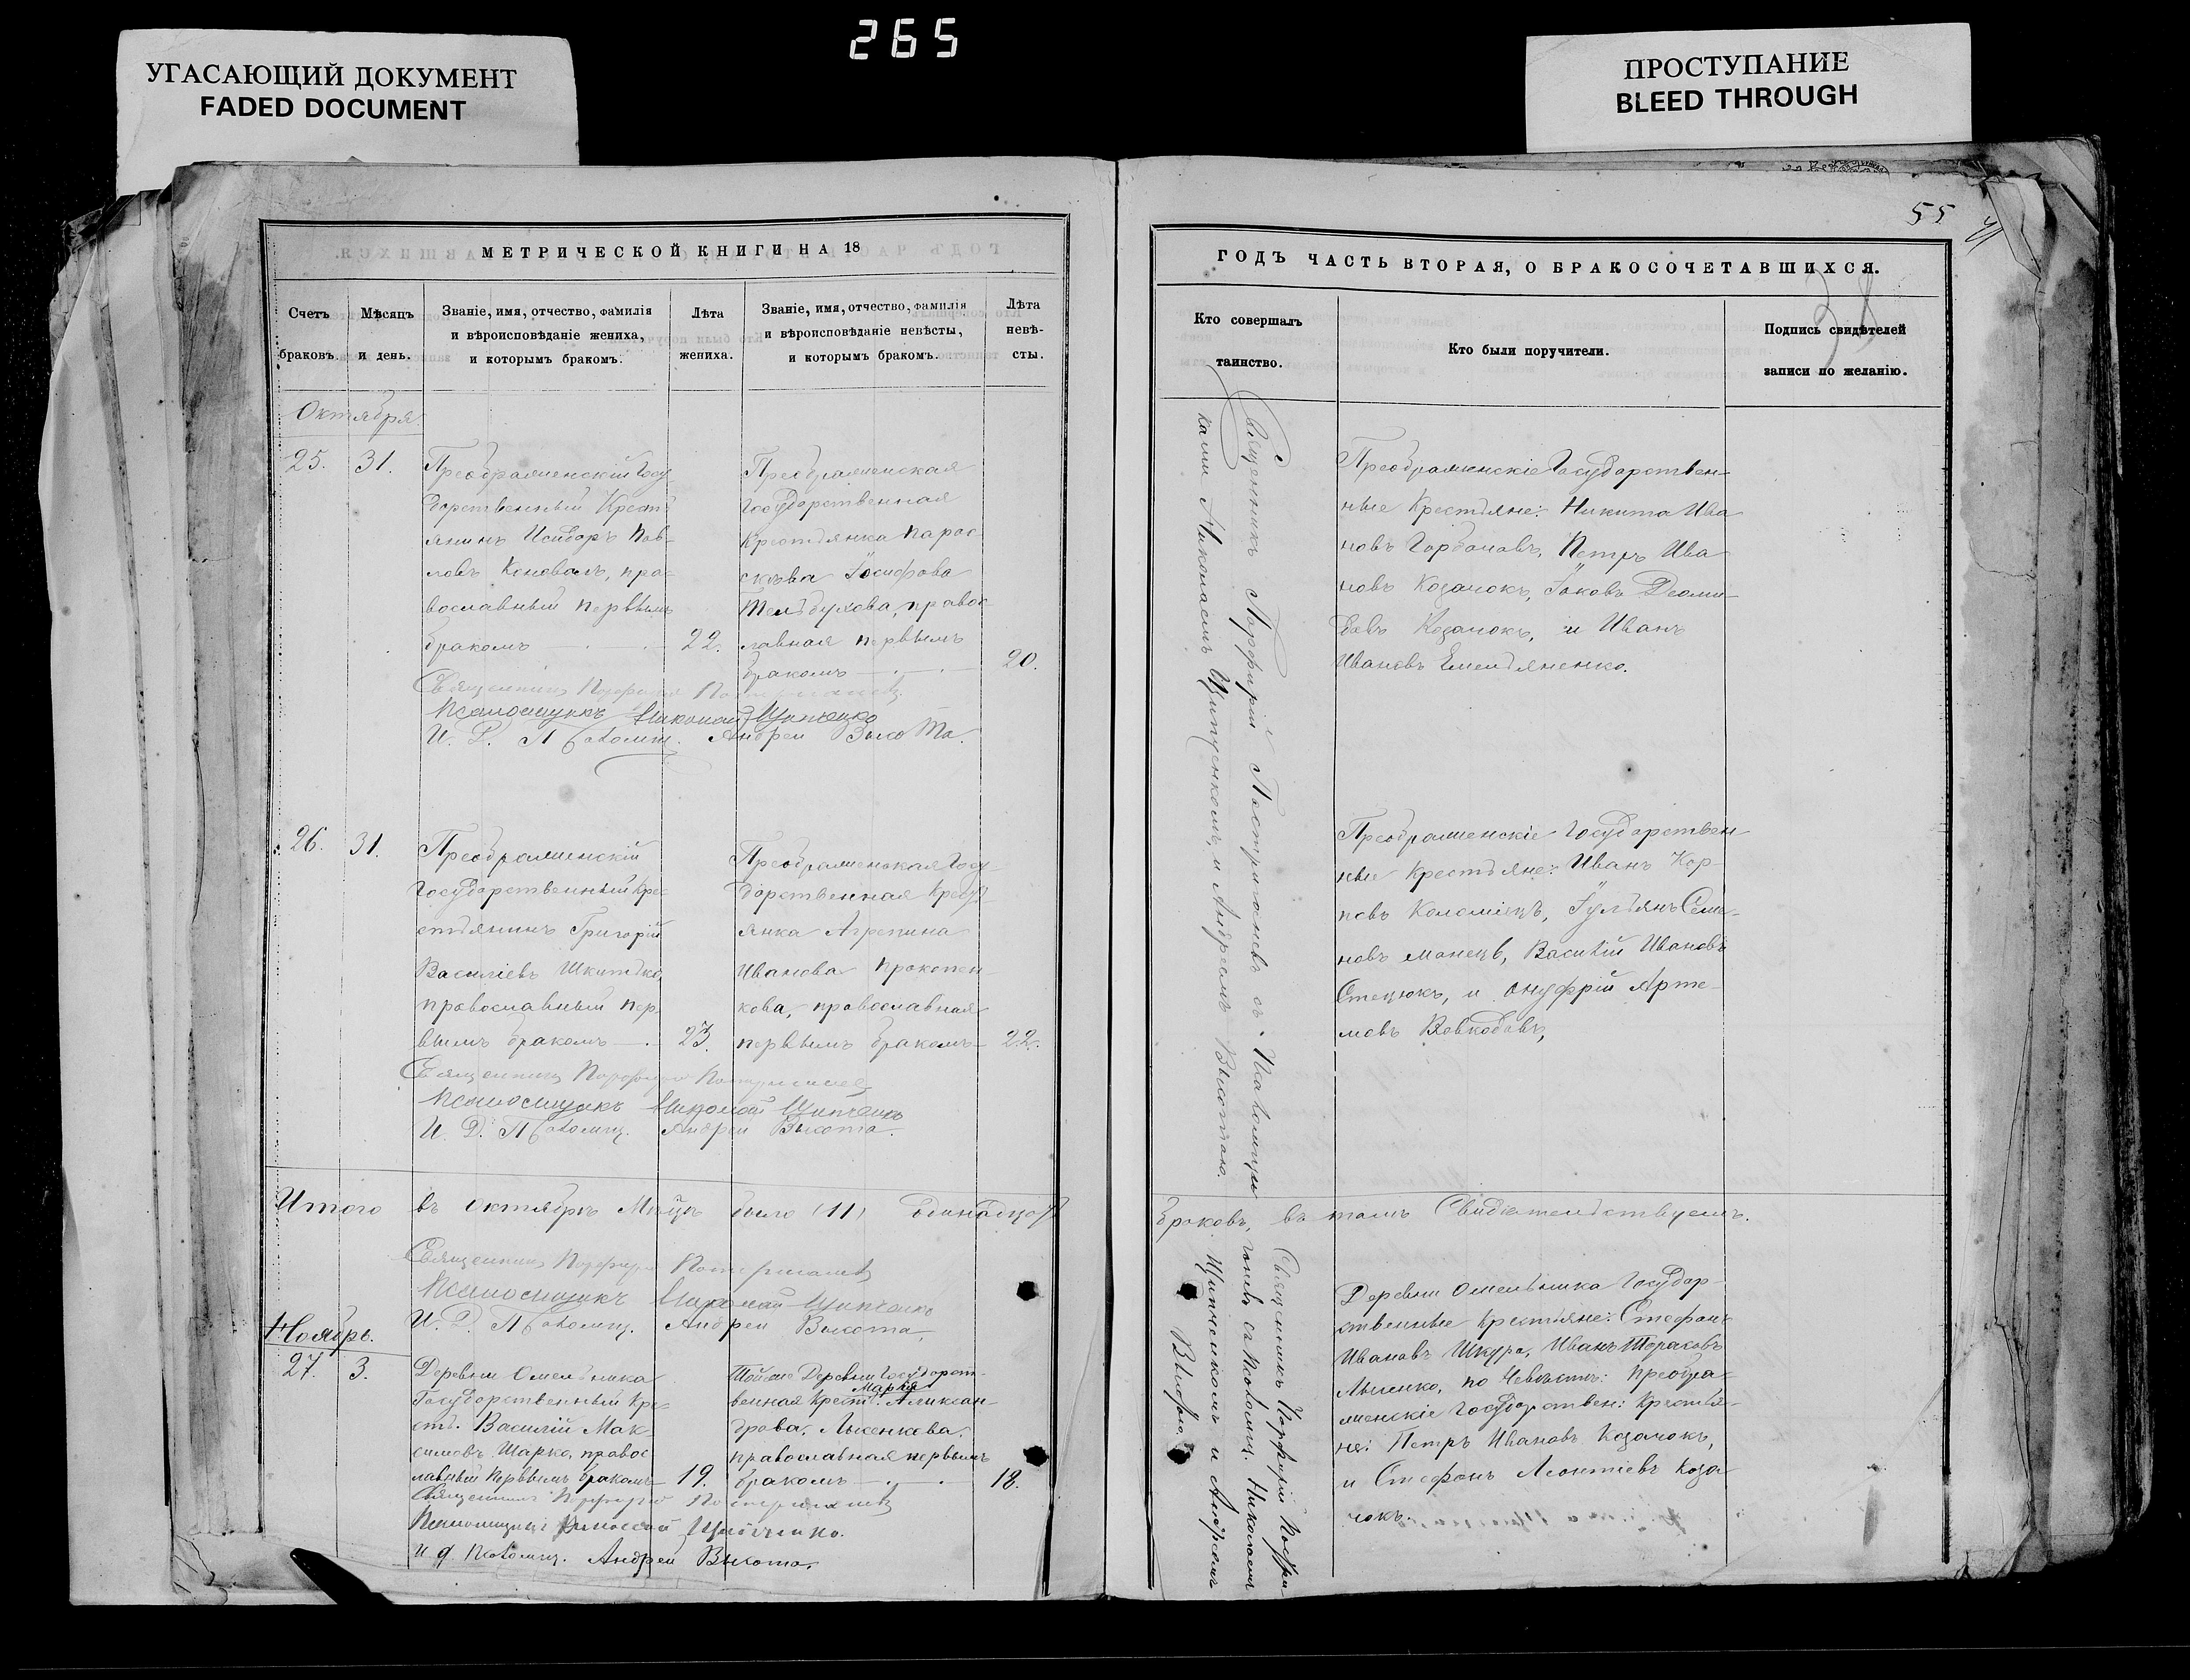 265
УГАСАЮЩИЙ ДОКУМЕНТ
FADED DOCUMENT
ПРОСТУПАНИЕ
BLEED THROUGH
МЕТРИЧЕСКОЙ КНИГИ НА 18
Счетъ
браковъ.
Мѣсяцъ
и день.
Званіе, имя, отчество, фамилія
и вѣроисповѣданіе жениха,
и которымъ бракомъ.
Лѣта
жениха.
Званіе, имя, отчество, фамилія
и вѣроисповѣданіе невѣсты,
и которымъ бракомъ.
Лѣта
невѣ-
сты.
Октября
25. 31.
Преображенскій Госу
дарственный Кресть
янинъ Исидоръ Пав-
ловъ Коновалъ, пра-
вославный первымъ
бракомъ
22.
Преображенская
Государственная
Крестьянка Парас
скева Іосифова
правос
лавная первымъ
бракомъ
20.
Священникъ Порфирій
Псаломщикъ Николай
И. Д. Псаломщ. Андрей Высота.
26. 31.
Преображенскій
Государственный Кре-
стьянинъ Григорій
Василіевъ
православный пер
вымъ бракомъ
23.
Преображенская Госу
дарственная Крест
янка Агрепина
Иванова Прокопен
кова, православная
первымъ бракомъ
22.
Священникъ Порфирій
Псаломщикъ Николай
И. Д. Псаломщ. Андрей Высота.
Итого въ Октябрѣ М-цѣ было (11) одинадцать
Священникъ Порфирій
Псаломщикъ Николай
И. Д. Псаломщ. Андрей Высота.
Ноябрь.
27. 3.
Деревни Омельника
Государственный Кре-
сть. Василій Мак
симовъ Шарко, правос
лавный первымъ бракомъ
19.
Тойже Деревни Государст-
Марія
венная Крест. Алексан-
дрова, Лысенкова,
православная первымъ
бракомъ
18.
Священникъ Порфирій
Псаломщикъ Николай
и д. Псаломщ. Андрей Высота.
55
ГОДЪ ЧАСТЬ ВТОРАЯ, О БРАКОСОЧЕТАВШИХСЯ.
38
Кто совершалъ
таинство.
Кто были поручители.
Подпись свидѣтелей
записи по желанію.
Священникъ Порфирій съ Псаломщи
ками Николаемъ и Андреемъ Высотою.
Преображенскіе Государствен-
ные Крестьяне: Никита Ива
новъ Горбачовъ, Петръ Ива
новъ Козачокъ, Іаковъ
Козачокъ, и Иванъ
Ивановъ Емельяненко.
Преображенскіе Государствен
ные Крестьяне: Иванъ Кар-
повъ Коломіецъ, Іульянъ Семе-
новъ Манецъ, Василій Ивановъ
Стецюкъ, и Онуфрій Арте-
мовъ Вовкодавъ,
браковъ, въ томъ Свидѣтельствуемъ.
Священникъ Порфирій
съ Псаломщ. Николаемъ
и Андреемъ
Высотою.
Деревни Омельника Государ-
ственные Крестьяне: Стефанъ
Ивановъ Шкура, Иванъ Тарасовъ
Лысенко, по Невѣстѣ: Преобра-
женскіе Государствен: Крестья-
не: Петръ Ивановъ Козачокъ,
и Стефанъ Леонтіевъ Коза
чокъ.